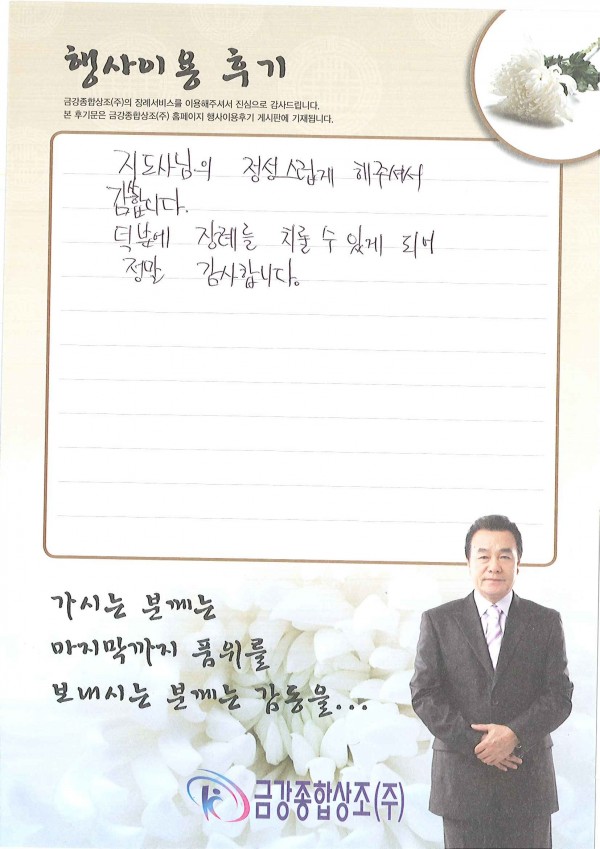 행사이용 후기
금강종합상조(주)의 장례서비스를 이용해주셔서 진심으로 감사드립니다.
본 후기문은 금강종합상조(주) 홈페이지 행사이용후기 게시판에 기재됩니다.
지도사님의 정성스럽게 해주셔서
감사합니다.
덕분에 장례를 치룰 수 있게 되어
정말 감사합니다.
가시는 분께는
마지막까지 품위를
보내시는 분께는 감동을...
금강종합상조(주)